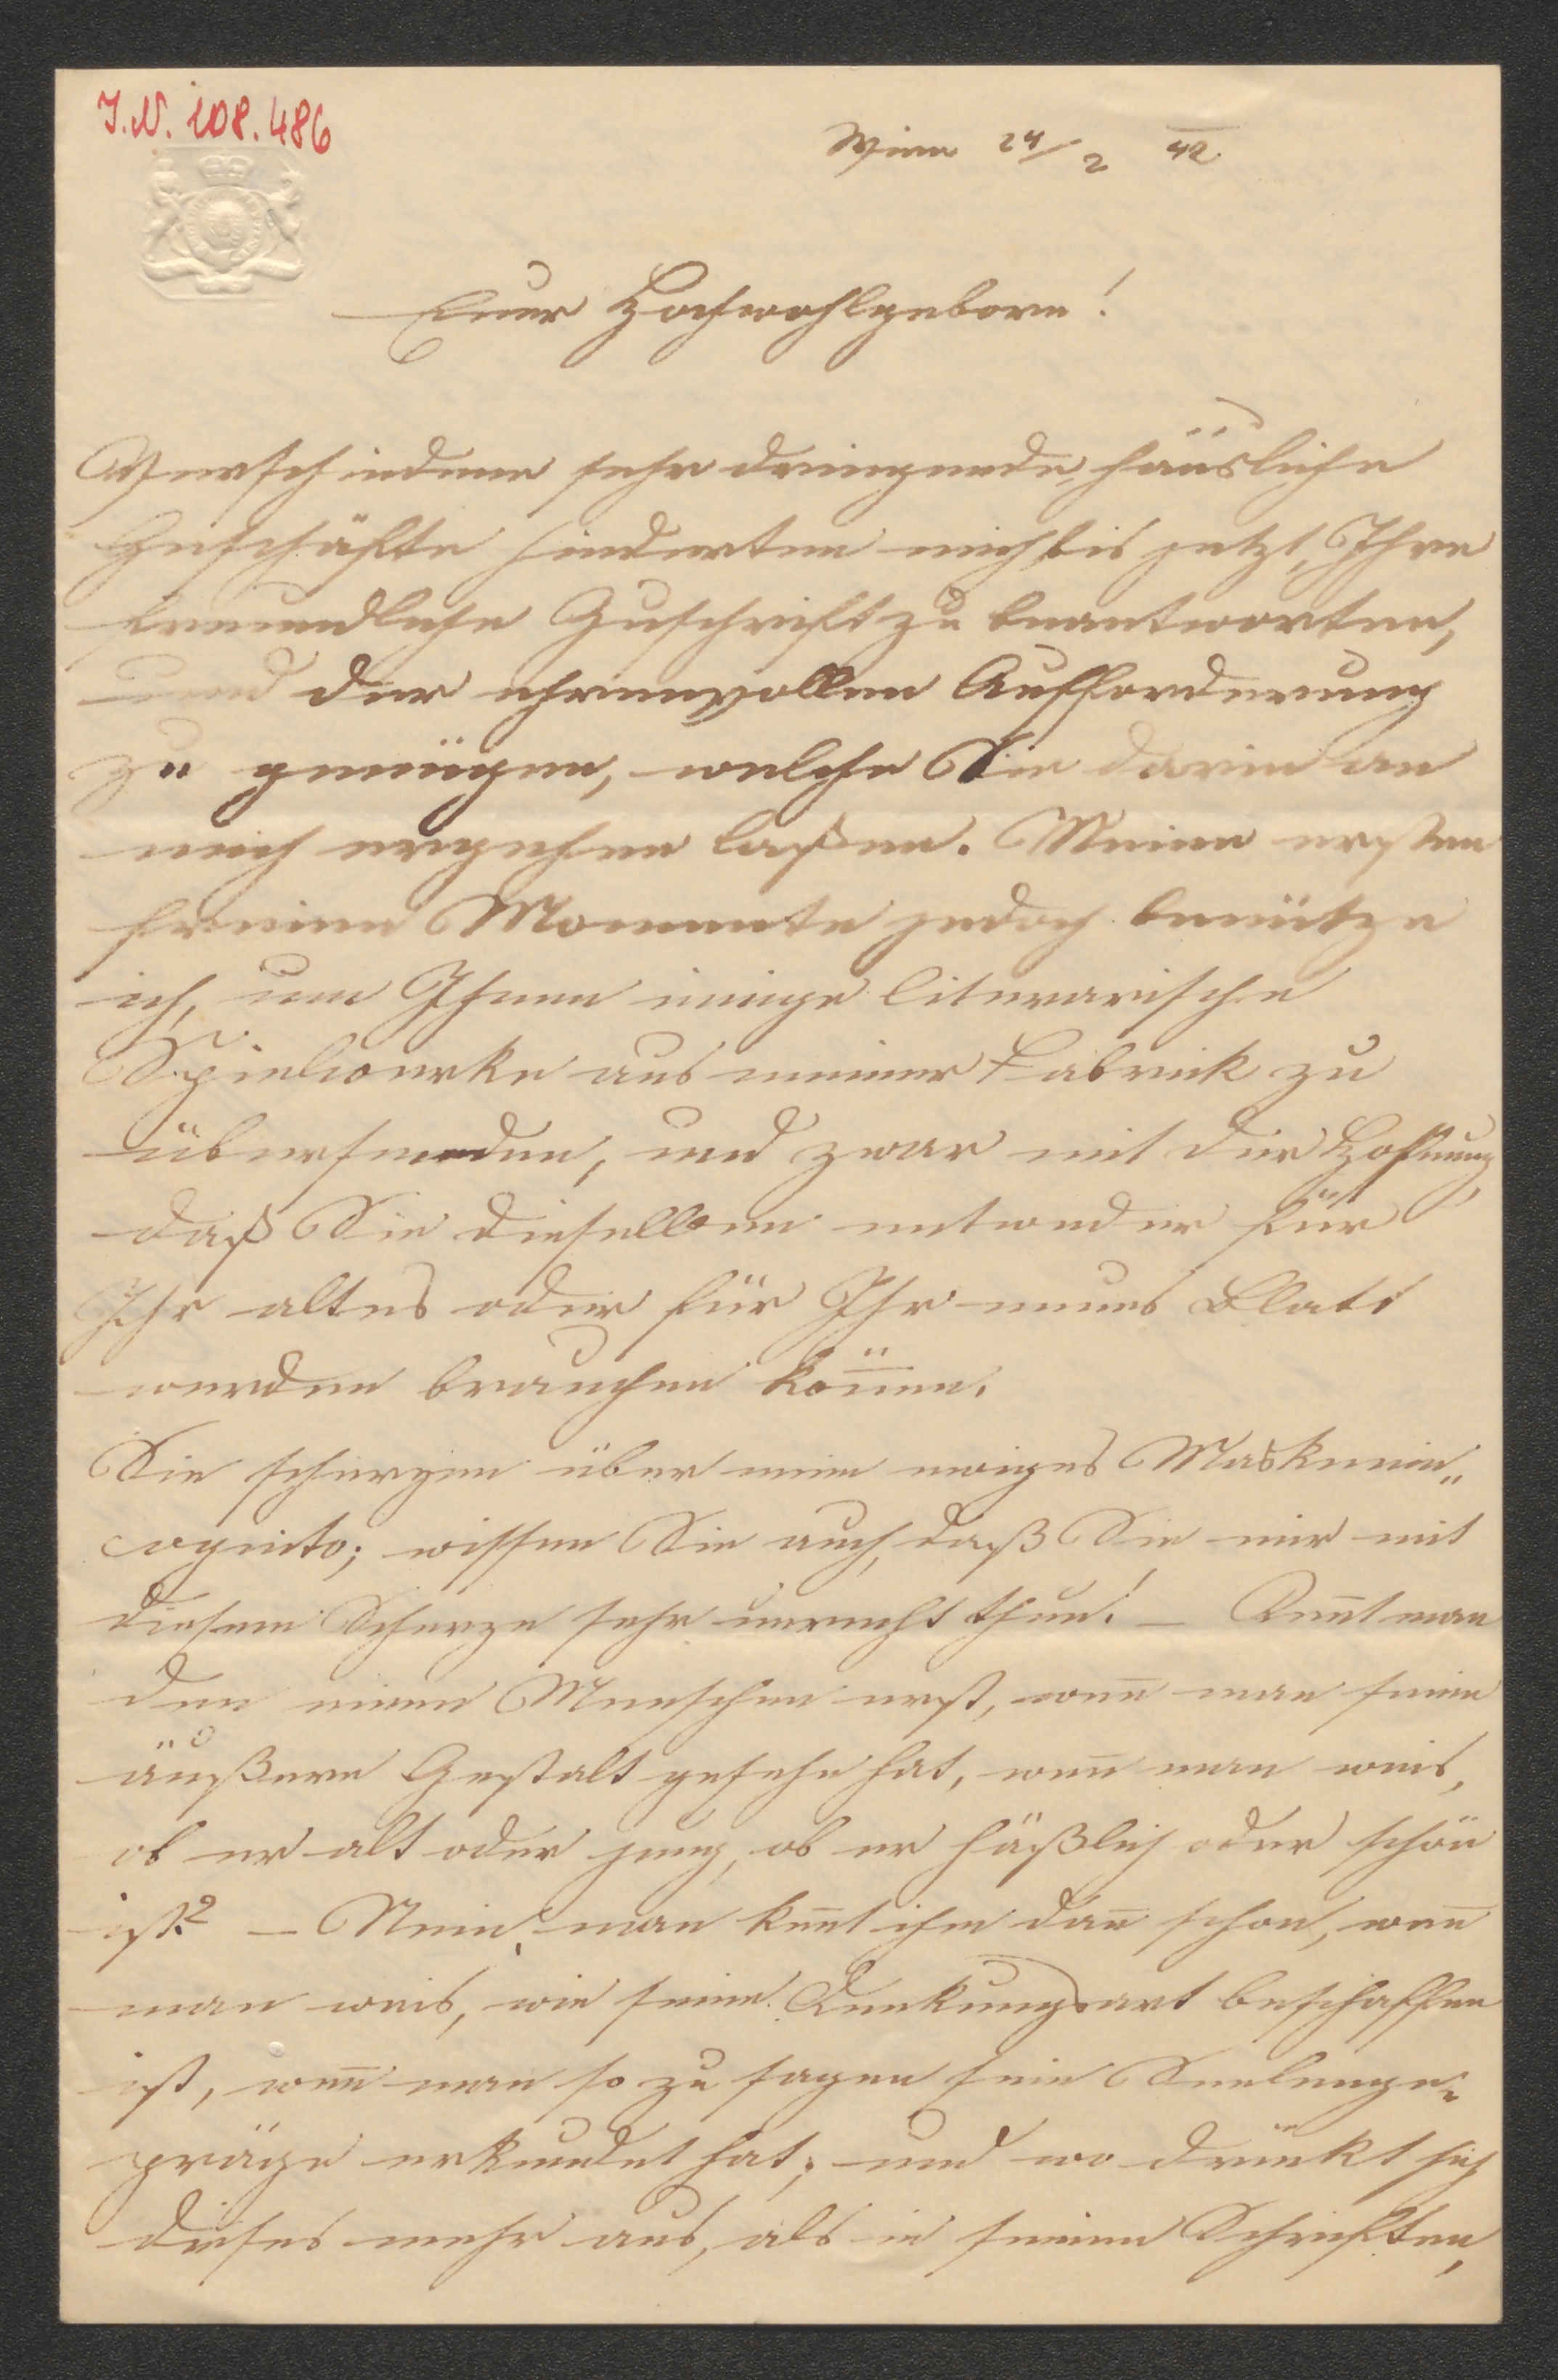 I.N. 108.486
Wien 24/2 42.
Euer Hochwohlgeboren!
Verschiedene sehr dringende, häusliche
Geschäfte hinderten mich bis jetzt, Ihre
freundliche Zuschrift zu beantworten,
und der ehrenvollen Aufforderung
zu genügen, welche Sie darin an
mich ergehen laßen. Meine ersten
freien Momente jedoch benütze
ich, um Ihnen einige literarische
Spielwerke aus meiner Fabrick zu
übersenden, und zwar mit der Hoffnung,
daß Sie dieselben entweder für
Ihr altes oder für Ihr neues Blatt
werden brauchen köñen.
Sie scherzen über mein ewiges Maskenin„
cognito; wissen Sie auch, daß Sie mir mit
diesem Scherze sehr unrecht thun! – Keñt man
den einen Menschen erst, weñ man seine
äußere Gestalt gesehen hat, weñ man weis,
ob er alt oder jung, ob er häßlich oder schön
ist? – Nein, man keñt ihn dañ schon, weñ
man weis, wie seine Denkungsart beschaffen
ist, weñ man so zu sagen sein Seelenge„
präge erkundet hat; und wo drückt sich
dieses mehr aus, als in seinen Schriften,